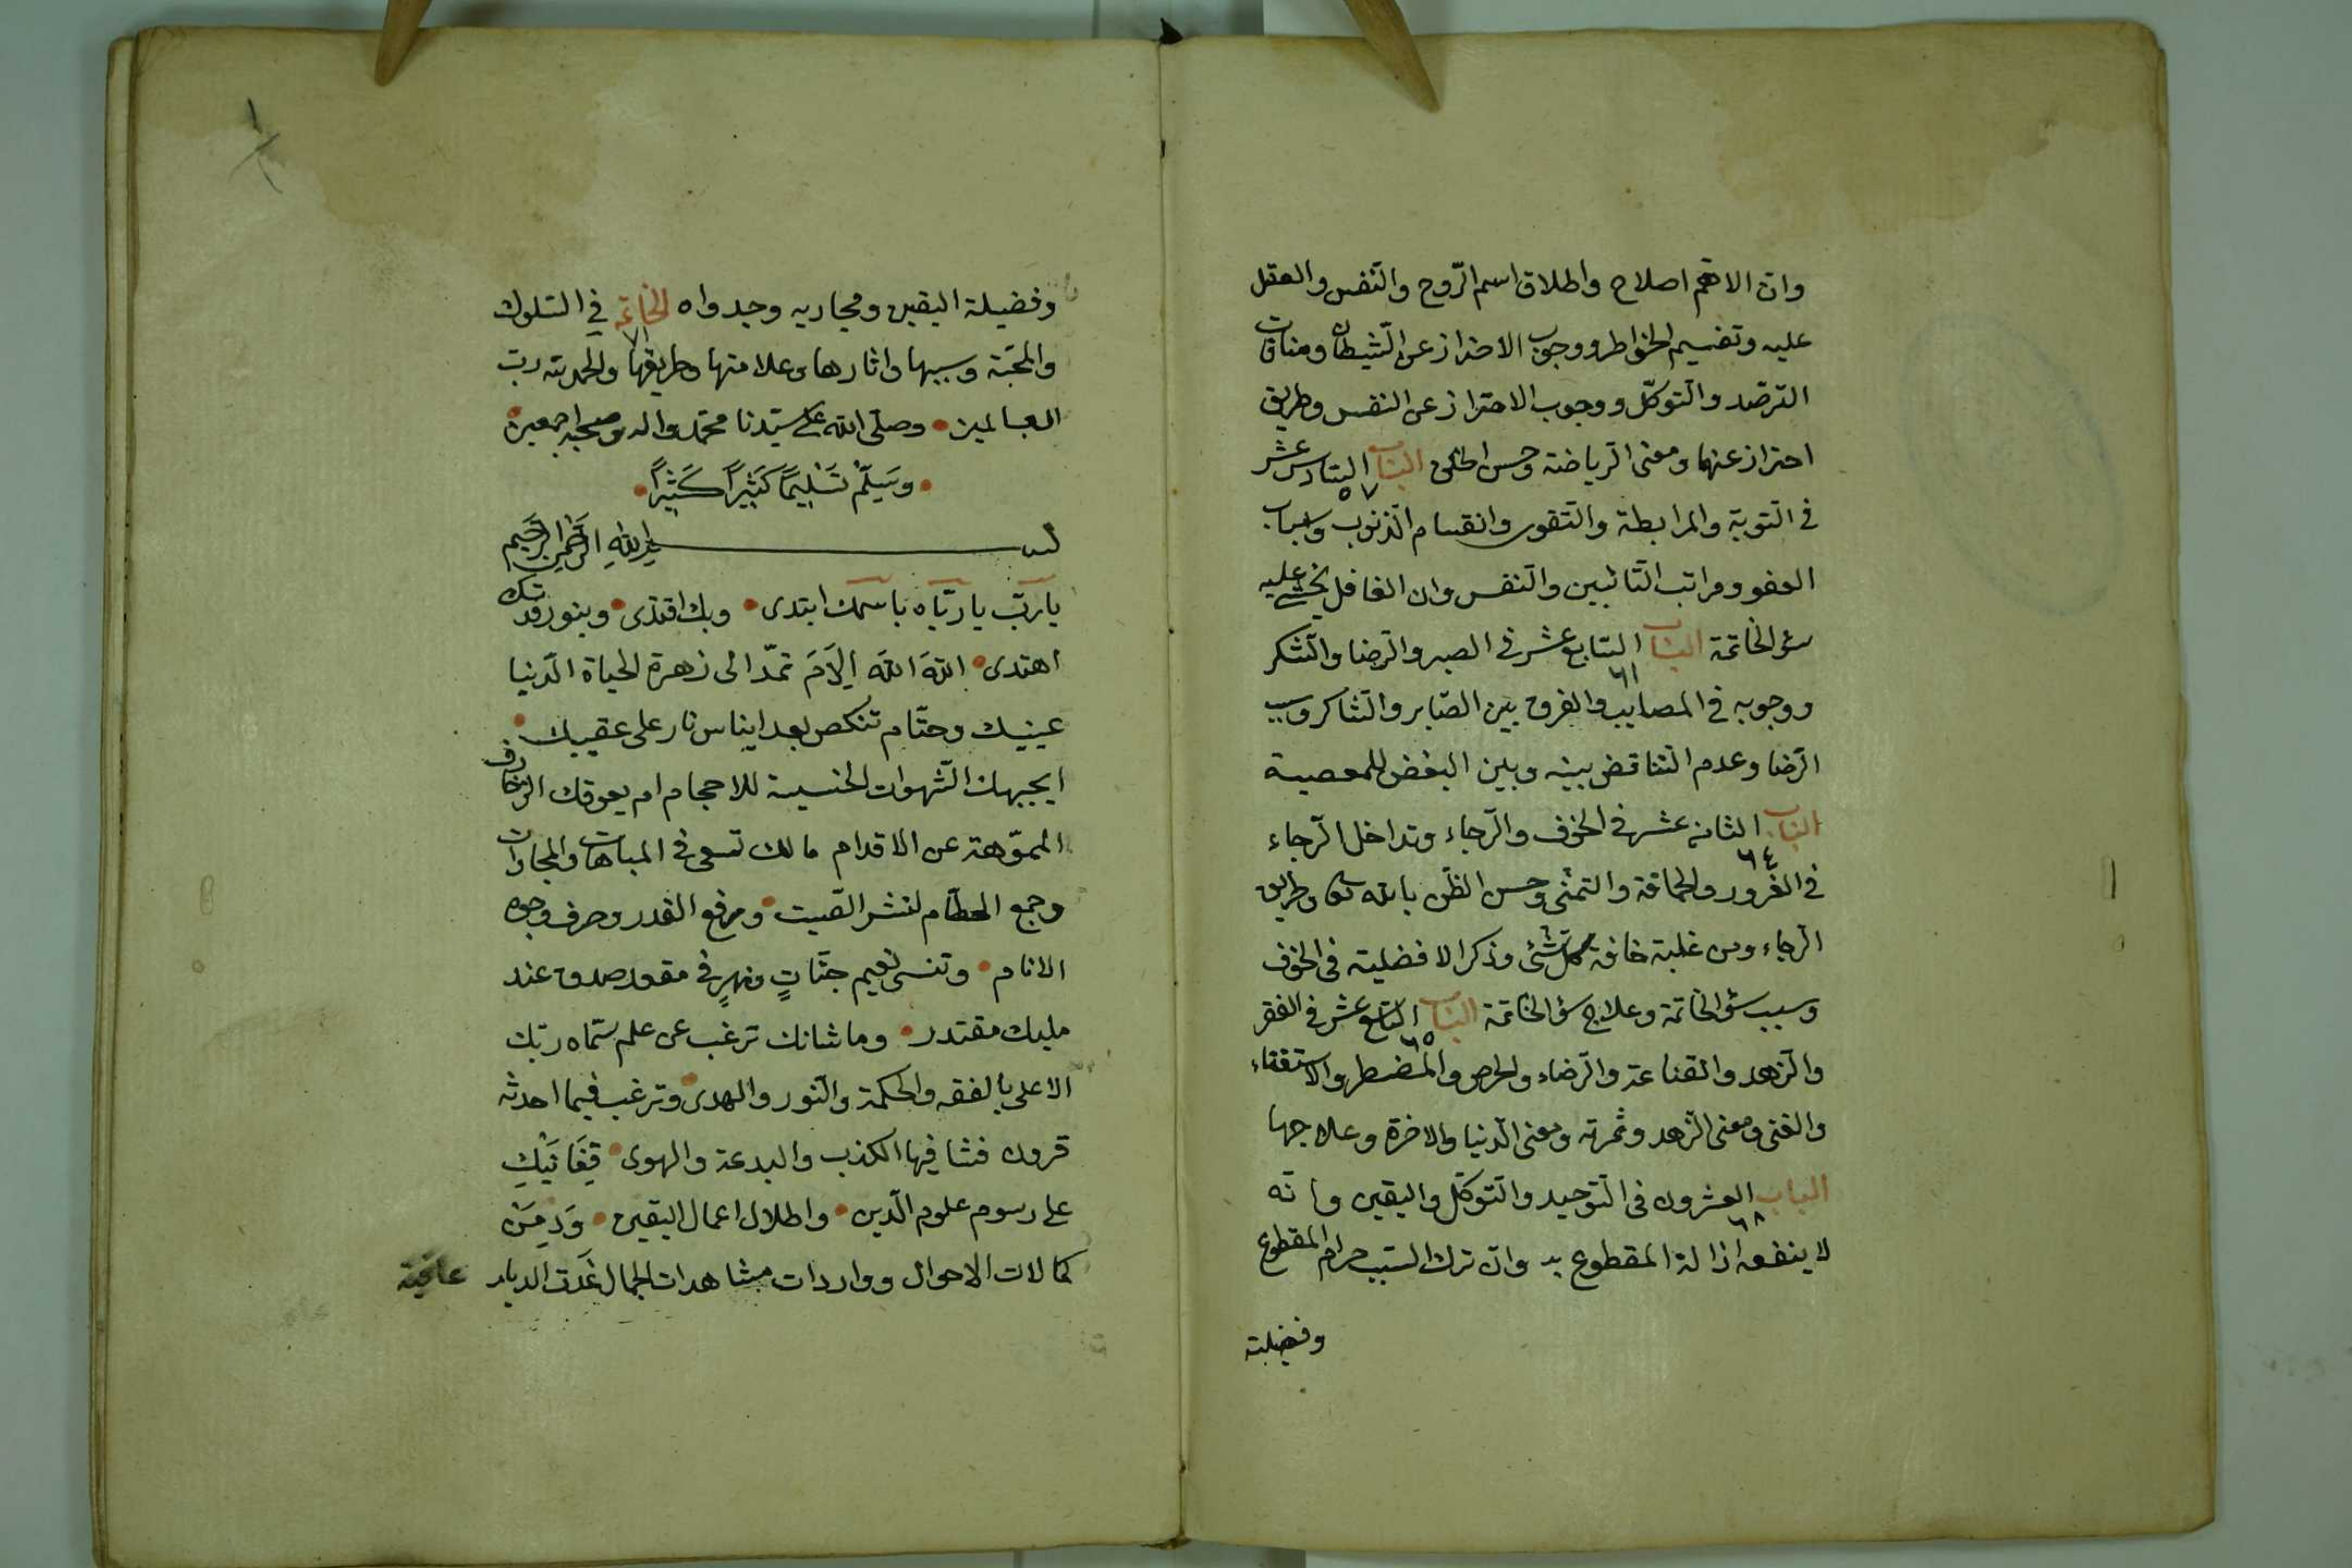 وان الاهم اصلاح واطلاق اسم الرّوح والنّفس والعقل
عليه وتقسيم الخواطر ووجوب الاحتراز عن الشّيطان ومنافات
الترصّد والتّوكّل ووجوب الاحتراز عن النفس وطريق
احتراز عنها ومعنى الرياضة وحسن الخلق الباب السّادس عشر
٥٧
فى التوبة والمرابطة والتّقوى وانقسام الذّنوب واسباب
العفو ومراتب التّائبين والنّفس وان الغافل يخشى عليه
سؤ الخاتمة الباب السّابع عشر فى الصبر والرّضا والشّكر
٦١
ووجوبه فى المصايب والفرق بين الصّابر والشّاكر وسبب
الرّضا وعدم التّناقض بينه وبين البغض للمعصية
الباب الثامن عشر فى الخوف والرّجاء وتداخل الرّجاء
٦٤
فى الغرور والحماقة والتمنّى وحسن الظّن بالله تعالى وطريق
الرجاء ومن غلبة خافه كل شئ وذكر الافضلية فى الخوف
وسبب سؤ الخاتمة وعلاج سؤ الخاتمة الباب التاسع عشر فى الفقر
٦٥
والزّهد والقناعة والرّضاء والحرص والمضطر والاستغناء
والغنى ومعنى الزّهد وثمرته ومعنى الدّنيا والاخرة وعلاجها
الباب العشرون فى التّوحيد والتّوكّل واليقين وانّه
٦٨
لا ينفعه ازالة المقطوع به وان ترك السّبب حرام المقطوع
وفضيلة
وفضيلة اليقين ومجاريه وجدواه الخاتمة فى السّلوك
٧١
والمحبّة وسببها واثارها وعلامتها وطريقها والحمد لله ربّ
العالمين وصلّى الله على سيّدنا محمّد واله وصحبه اجمعين
وسَلِّمْ تَسْلِيمًا كَثِيرًا كَثِيرًا
بسم اللهِ الرَّحْمنِ الرَّحيم
يا ربّ يا ربّاه باسمك ابتدى وبك اقتدى وبنور قدسك
اهتدى اللهَ اللهَ اِلَامَ تمدّ الى زهرة الحياة الدّنيا
عينيك وحتّام تنكص بعد ايناس نار على عقبيك
ايجبهك الشّهوات الخسيسة للاحجام ام يعوقك الزخارف
المموّهة عن الاقدام مالك تسعى فى المباهات والمجارات
وجمع الحطام لنشر الصّيت ورفع القدر وصرف وجوه
الانام وتنسى نعيم جنّاتٍ ونهرٍ فى مقعد صدق عند
مليك مقتدر وما شانك ترغب عن علم سمّاه ربّك
الاعلى بالفقه والحكمة والنّور والهدى وترغب فيما احدثه
قرون فشا فيها الكذب والبدعة والهوى قِفَا نَبْكِ
على رسوم علوم الدّين واطلال اعمال اليقين وَدِمَنْ
كمالات الاحوال وواردات مشاهدات الجمال غَدَت الديار عافية